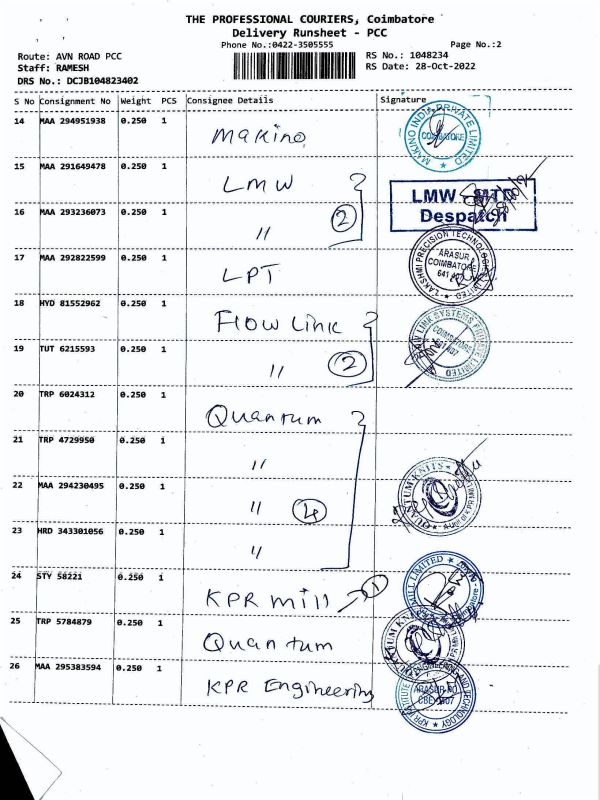 THE PROFESSIONAL COURIERS, Coimbatore
Delivery Runsheet - PCC
Phone No.:0422-3505555
Page No.:2
Route: AVN ROAD PCC
RS No.: 1048234
Staff: RAMESH
RS Date: 28-Oct-2022
DRS No.: DCJB104823402
S No Consignment No Weight PCS Consignee Details Signature
14 MAA 294951938 0.250 1 Makino
MAKINO INDIA PRIVATE LIMITED COIMBATORE
15 MAA 291649478 0.250 1 LMW
LMW - MTD
Despatch
16 MAA 293236073 0.250 1 " 2
17 MAA 292822599 0.250 1 LPT
LAKSHMI PRECISION TECHNOLOGIES LIMITED
ARASUR
COIMBATORE
641 407
18 HYD 81552962 0.250 1 Flow Link
LINK SYSTEMS PRIVATE LIMITED
COIMBATORE
641 407
19 TUT 6215593 0.250 1 " 2
20 TRP 6024312 0.250 1 Quantum
21 TRP 4729950 0.250 1 "
22 MAA 294230495 0.250 1 " 4
QUANTUM KNITS
23 HRD 343301056 0.250 1 "
24 STY 58221 0.250 1 KPR mill 1
MILL LIMITED
25 TRP 5784879 0.250 1 Quantum
QUANTUM KNITS
26 MAA 295383594 0.250 1 KPR Engineering
KPR INSTITUTE ENGINEERING AND TECHNOLOGY
ARASUR PO
CBE